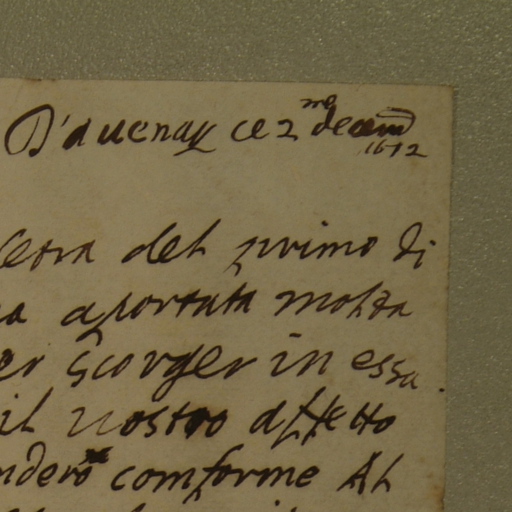 D'auenay ce 2 me decem
1612
del primo di
a aportata molta
er scorger in essa.
il nostro affetto
ndero comforme Al